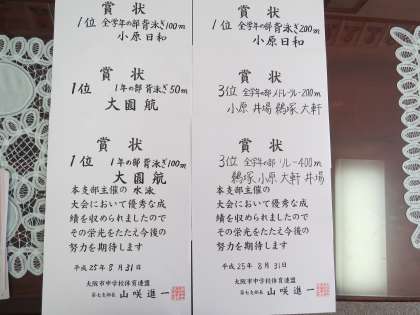 賞状
1位 全学年の部 背泳ぎ100m
小原日和
賞状
1位 1年の部 背泳ぎ50m
大園 航
賞状
1位 1年の部 背泳ぎ100m
大園 航
本支部主催の 水泳
大会において優秀な成
績を収められましたので
その栄光をたたえ今後の
努力を期待します
平成25年8月31日
大阪市中学校体育連盟
第七支部長 山咲進一
賞状
1位 全学年の部 背泳ぎ200m
小原日和
賞状
3位 全学年の部 メドレーリレー200m
小原 井場 鵜塚 大軒
賞状
3位 全学年の部 リレー400m
鵜塚 小原 大軒 井場
本支部主催の 水泳
大会において優秀な成
績を収められましたので
その栄光をたたえ今後の
努力を期待します
平成25年8月31日
大阪市中学校体育連盟
第七支部長 山咲進一